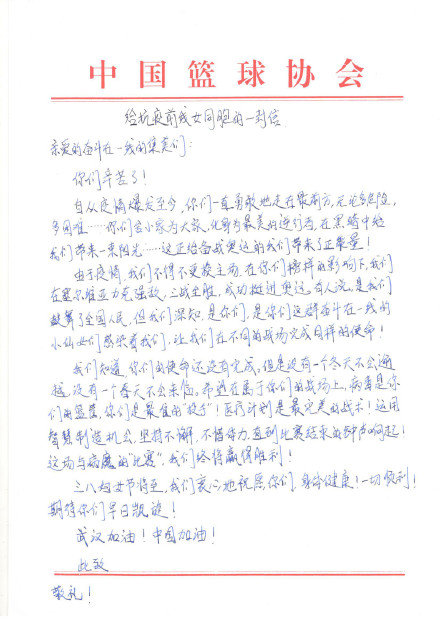 中国篮球协会
给抗疫前线女同胞的一封信
亲爱的奋斗在一线的集美们:
你们辛苦了!
自从疫情爆发至今,你们一直勇敢地走在最前方,无论多危险,
多困难……你们舍小家为大家,化身为最美的逆行者,在黑暗中给
我们带来一束阳光……这正给备战奥运的我们带来了正能量!
由于疫情,我们不得不更换主场,在你们榜样的影响下,我们
在塞尔维亚力克强敌,三战全胜,成功挺进奥运,有人说,是我们
鼓舞了全国人民,但我们深知,是你们,是你们这群奋斗在一线的
小仙女们感染着我们,让我们在不同的战场完成同样的使命!
我们知道,你们的使命还没有完成,但是没有一个冬天不会逾
越,没有一个春天不会来临,希望在属于你们的战场上,病毒是你
们的篮筐,你们是最佳的"投手"!医疗计划是最完美的战术!运用
智慧制造机会,坚持不懈,不惜体力,直到比赛结束的铃声响起!
这场与病魔的"比赛",我们终将赢得胜利!
三八妇女节将至,我们衷心地祝愿你们,身体健康!一切顺利!
期待你们早日凯旋!
武汉加油!中国加油!
此致
敬礼!